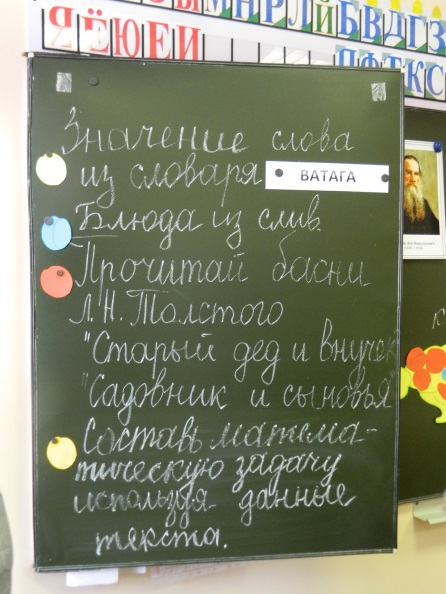 МНРЛЙБВДГЗ
ЯЁЮЕИ
ПФТКС
Значение слова
из словаря ВАТАГА
Блюда из слив.
Прочитай басни
Л.Н.Толстого
"Старый дед и внучек
"Садовник и сыновья
Составь матема-
тическую задачу
используя данные
текста.